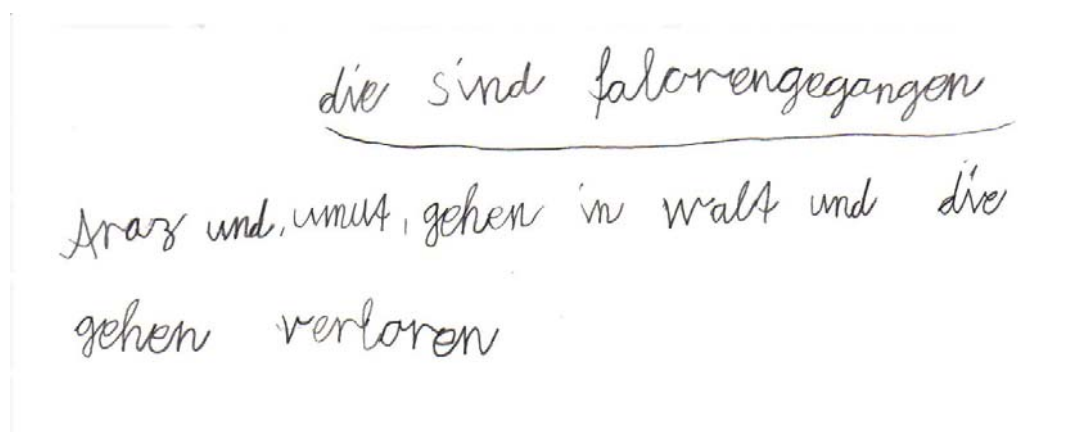 die sind falorengegangen
Araz und, umut, gehen in walt und die
gehen verloren